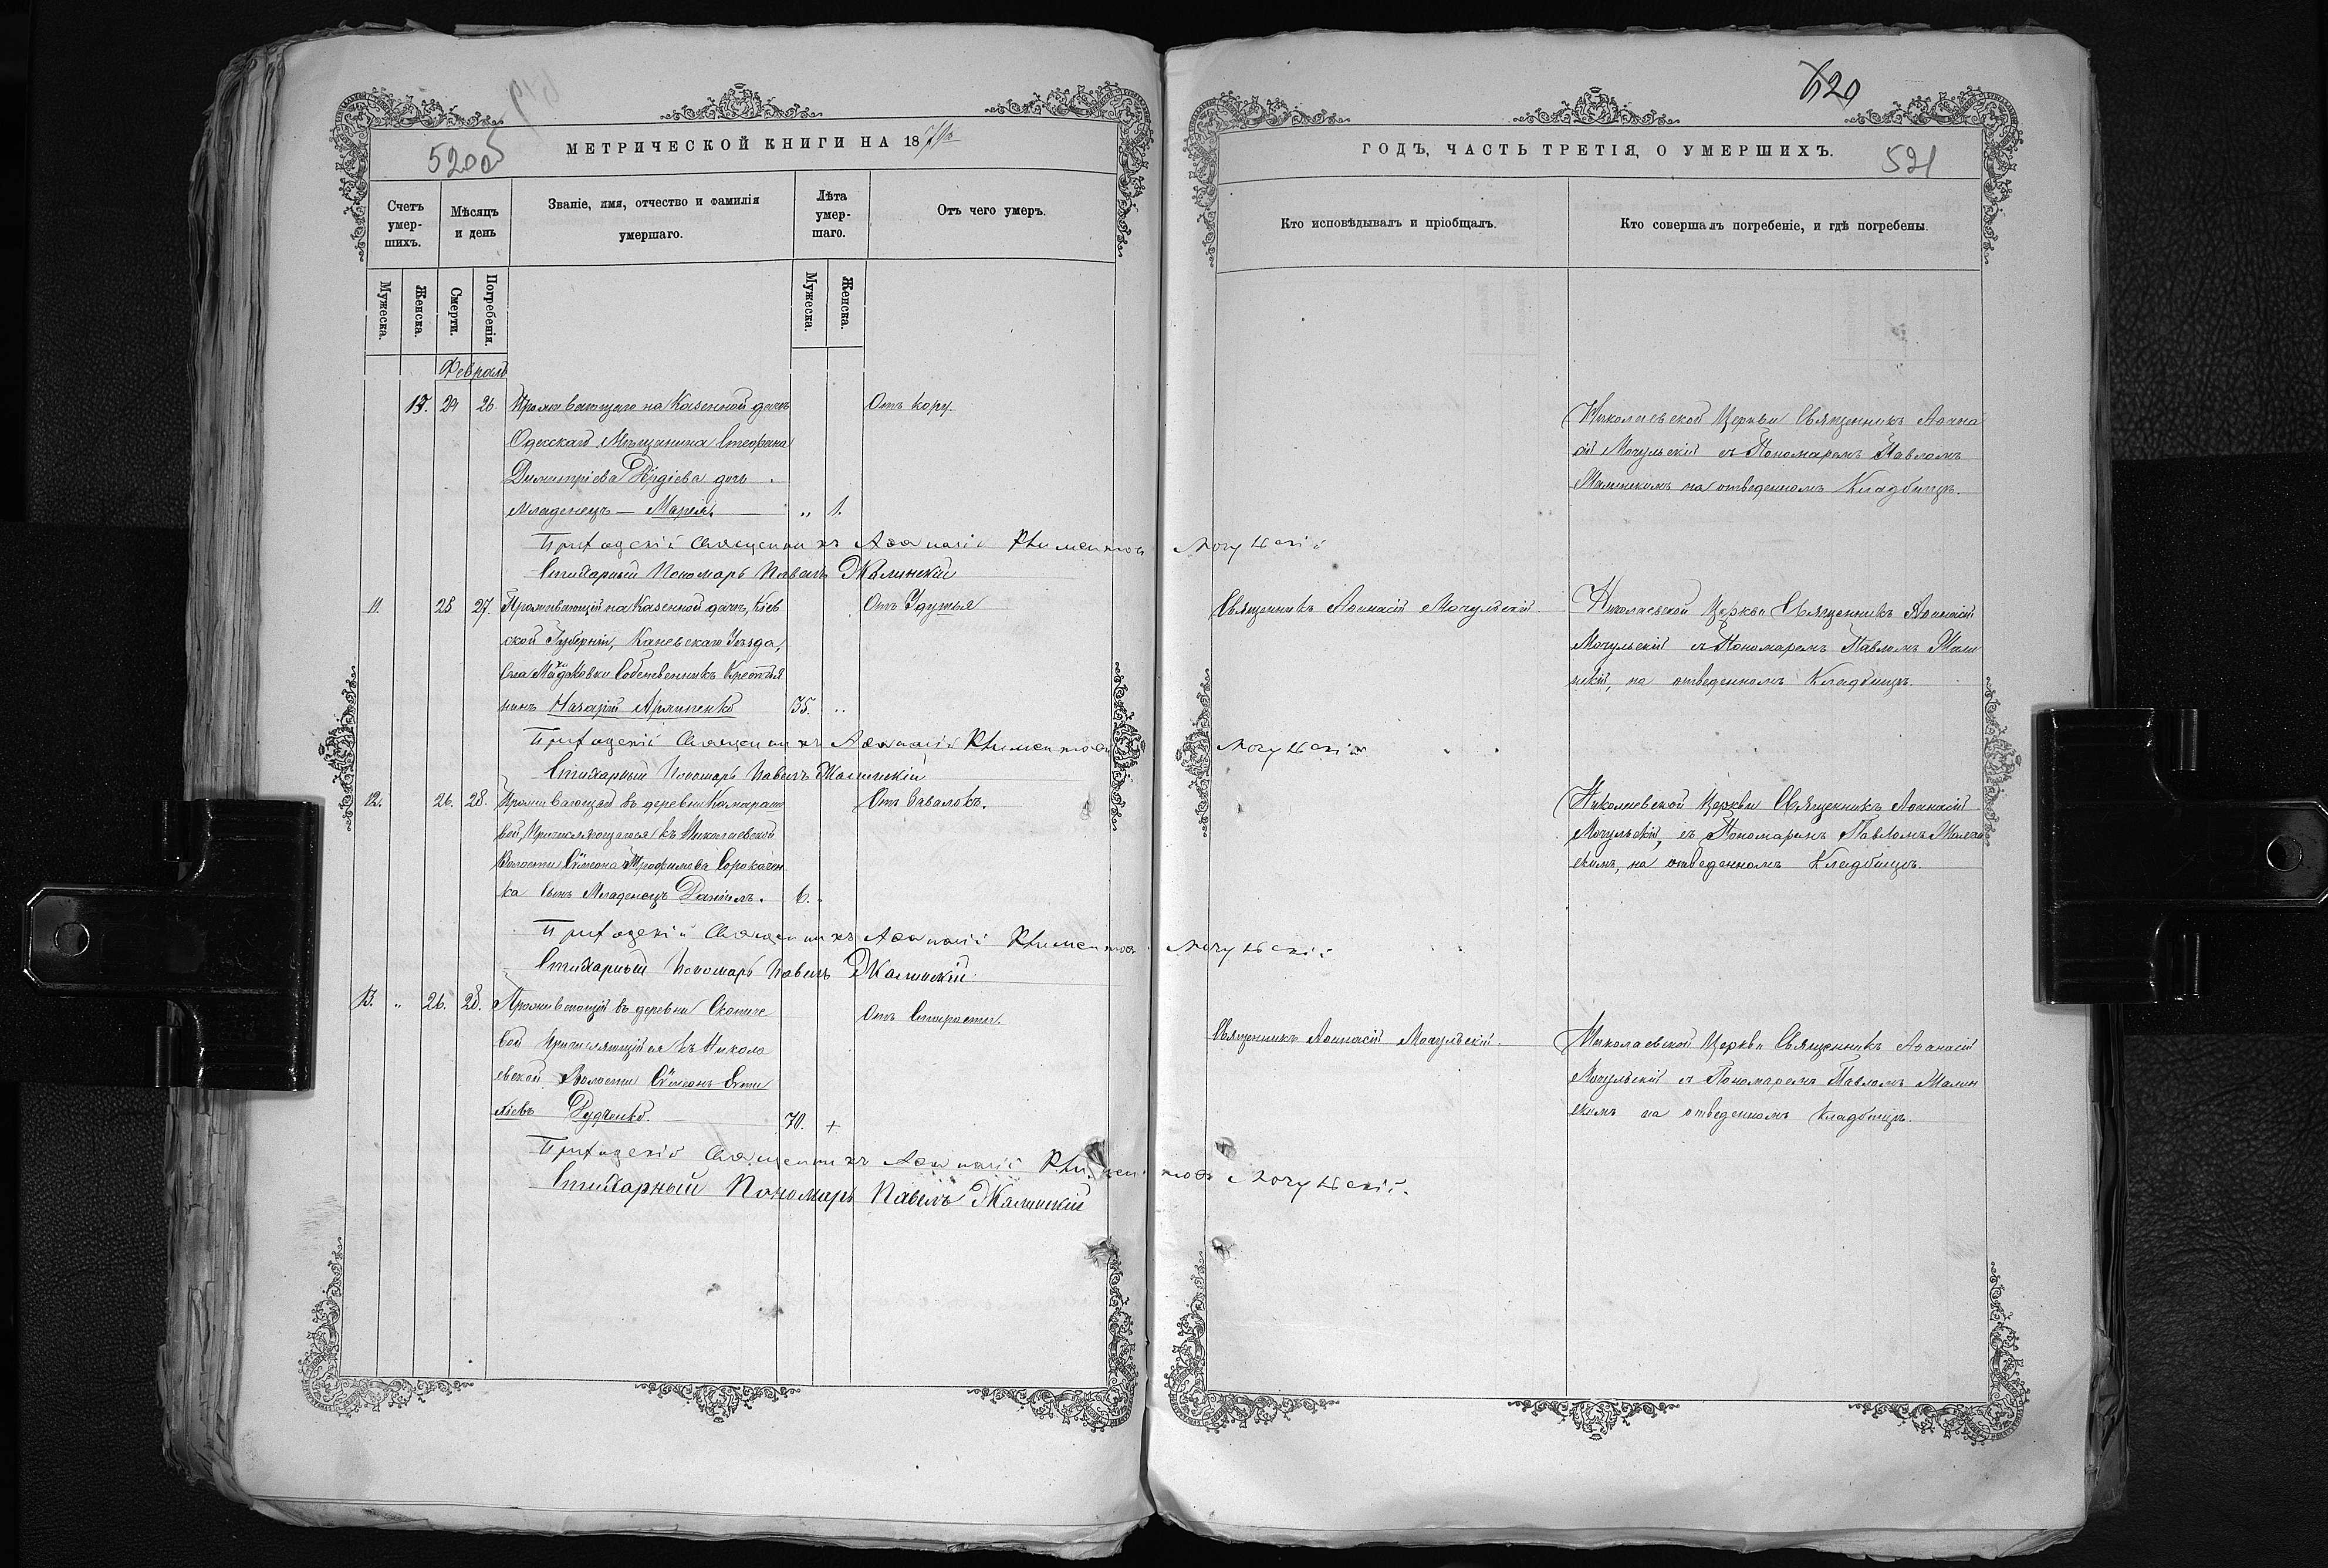 520об
МЕТРИЧЕСКОЙ КНИГИ НА 18
Счетъ умер-шихъ.
Мѣсяцъ и день
Званіе, имя, отчество и фамилія умершаго.
Лѣта умер-шаго.
Отъ чего умеръ.
Мужеска.
Женска.
Смерти.
Погребенія.
Мужеска.
Женска.
Февраль
24 26. Проживающаго на Казенной дачѣ Отъ кору.
Одесскаго Мѣщанина Стефана
Димитріева дочь
Младенецъ — Марія. „ 1.
Приходскій Священникъ Аѳанасій Климентовъ Мочульскій
Стихарный Пономарь Павелъ Жалинскій
11. 27. Проживающій на Казенной дачѣ, Кіев
ской Губерніи, Каневскаго Уѣзда,
Собственникъ Крестья
нинъ Назарій 35. „
Приходскій Священникъ Аѳанасій Климентовъ Мочульскій
Стихарный Пономарь Павелъ Жалинскій
12. 26. 28. въ деревни
вой, къ Николаевской
Волости Сѵмеона Трофимова
ка сынъ Младенецъ Даніилъ. 6.
Приходскій Священникъ Аѳанасій Климентовъ Мочульскій
Стихарный Пономарь Павелъ Жалинскій
13. „ 26. 28. Проживающій въ деревни Отъ Старости.
вой Причисляющійся къ Никола
евской Волости Сѵмеонъ
Дудченко. 70. +
Приходскій Священникъ Аѳанасій Климентовъ Мочульскій.
Стихарный Пономарь Павелъ Жалинскій
620
ГОДЪ, ЧАСТЬ ТРЕТІЯ, О УМЕРШИХЪ.
521
Кто исповѣдывалъ и пріобщалъ.
Кто совершалъ погребеніе, и гдѣ погребены.
Николаевской Церкви Священникъ Аѳана
сій Мочульскій съ Пономаремъ Павломъ
на отведенномъ Кладбищѣ.
Священникъ Аѳанасій Мочульскій.
Николаевской Церкви Священникъ Аѳанасій
Мочульскій съ Пономаремъ Павломъ Жалин
скій, на отведенномъ Кладбищѣ.
Николаевской Церкви Священникъ Аѳанасій
Мочульскій, съ Пономаремъ Павломъ Жалин
скимъ, на отведенномъ Кладбищѣ.
Священникъ Аѳанасій Мочульскій.
Николаевской Церкви Священникъ Аѳанасій
Мочульскій съ Пономаремъ Павломъ Жалин
скимъ на отведенномъ Кладбищѣ.